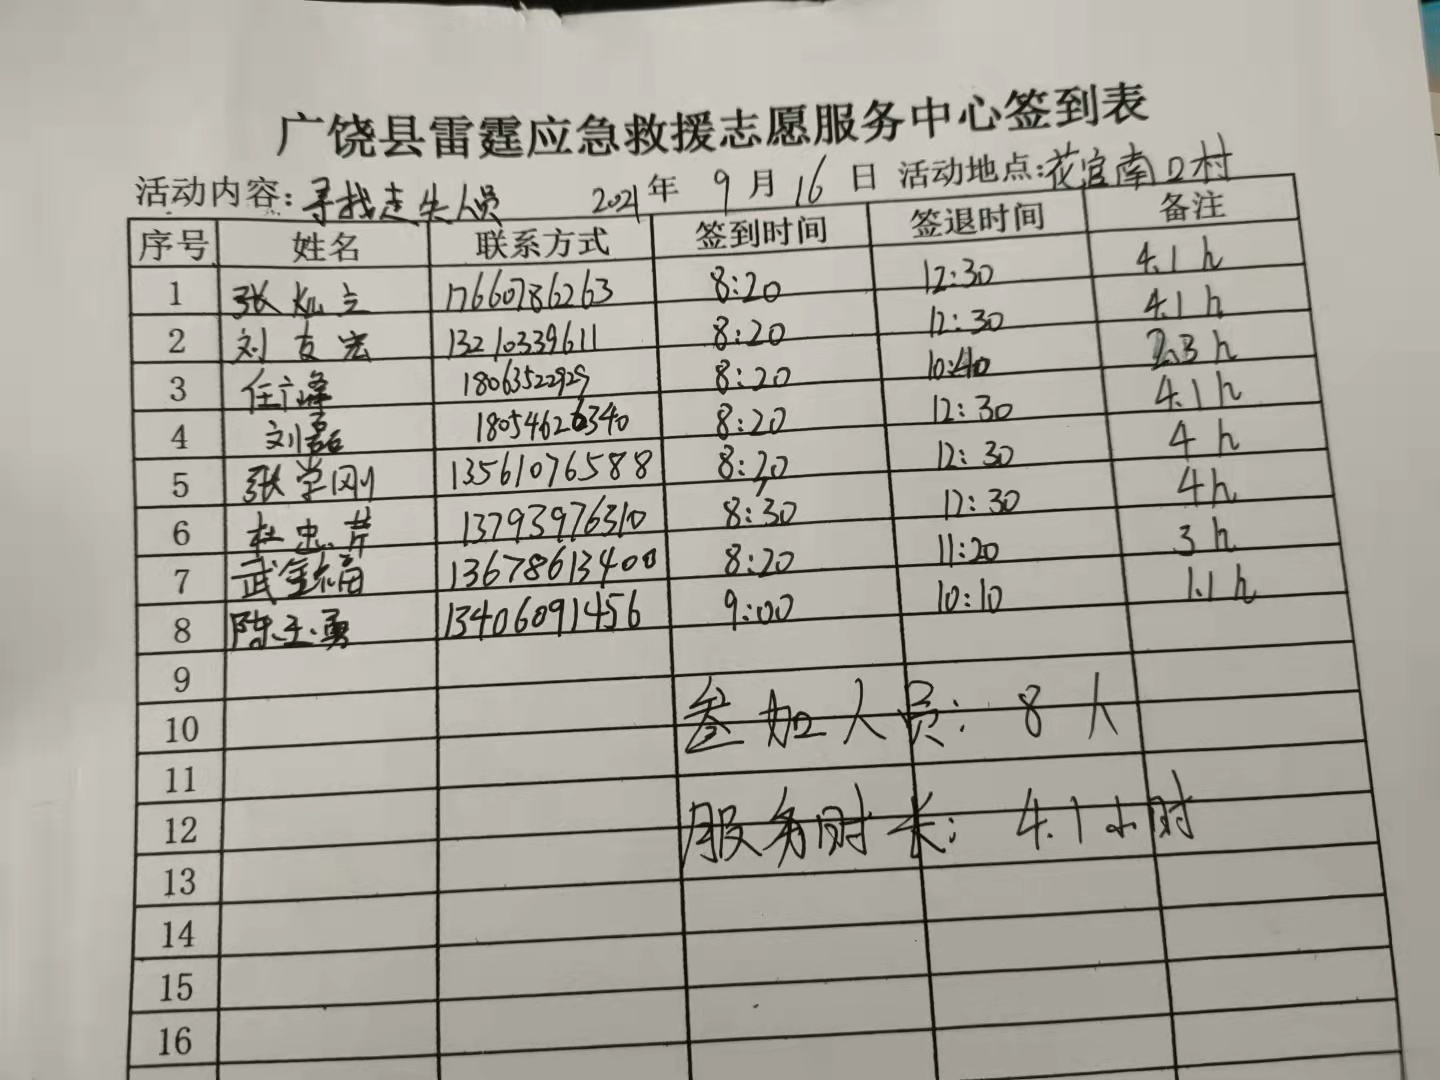 广饶县雷霆应急救援志愿服务中心签到表
活动内容:寻找走失人员 2021年 9月16日 活动地点:花官南口村
序号 姓名 联系方式 签到时间 签退时间 备注
1 张灿之 17660786263 8:20 12:30 4.1h
2 刘友宏 13210339611 8:20 12:30 4.1h
3 任广峰 18063522929 8:20 10:40 2.3h
4 刘磊 18054626340 8:20 12:30 4.1h
5 张学刚 13561076588 8:20 12:30 4h
6 杜忠 13793976310 8:30 12:30 4h
7 武金福 13678613400 8:20 11:20 3h
8 陈玉勇 13406091456 9:00 10:10 1.1h
9
10 参加人员: 8人
11
12 服务时长: 4.1小时
13
14
15
16